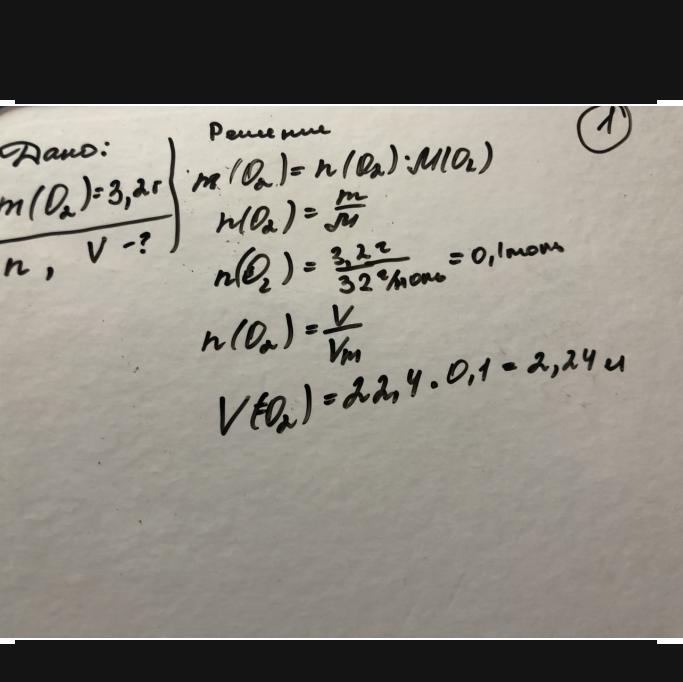 1
Дано:
m(O₂)=3,2г
n, V-?
Решение
m(O₂)=n(O₂)·M(O₂)
n(O₂)=m/M
n(O₂)=3,2г/32г/моль=0,1моль
n(O₂)=V/Vm
V(O₂)=22,4·0,1=2,24л